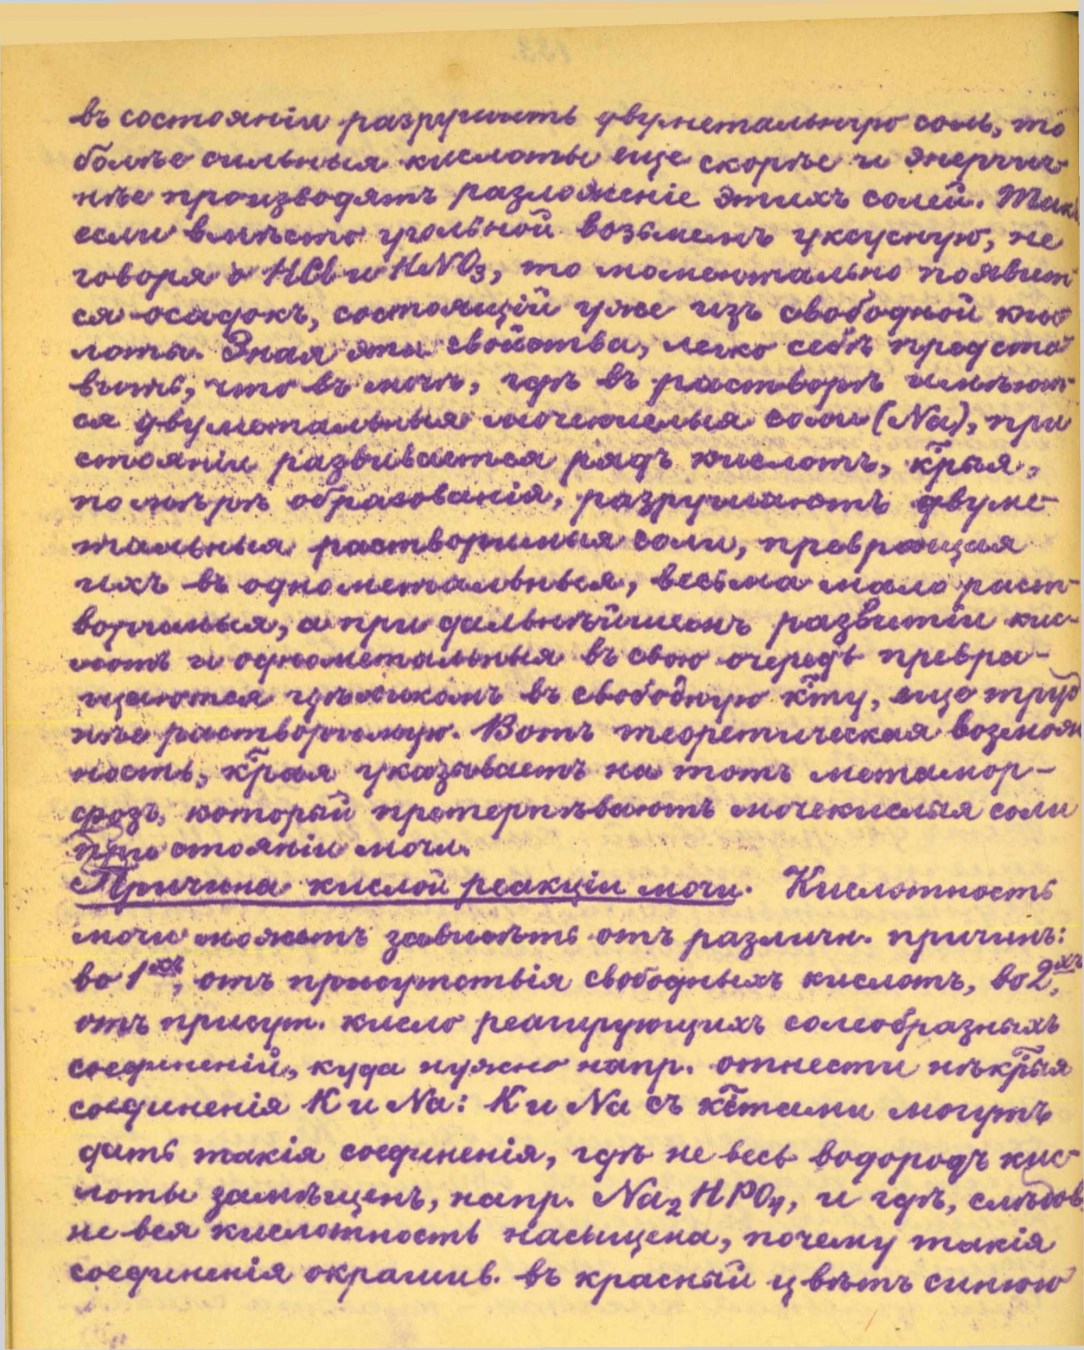 въ состоянiи разрушить двуметальную соль, то
болѣе сильныя кислоты еще скорѣе и энергич-
нѣе производятъ разложенiе этихъ солей. Такъ
если вмѣсто угольной возьмемъ уксусную, не
говоря о HCl и HNO₃, то моментально появит
ся осадокъ, состоящiй уже изъ свободной кис
лоты. Зная эти свойства, легко себѣ предста
вить, что въ мочѣ, гдѣ въ растворѣ имѣют-
ся двуметальныя мочекислыя соли (Na), при
стоянiи развивается рядъ кислотъ, к͞рыя,
по мѣрѣ образованiя, разрушаютъ двуме-
тальныя растворимыя соли, превращая
ихъ въ однометальныя, весьма мало раст-
воримыя, а при дальнѣйшемъ развитiи кис-
лотъ и однометальныя въ свою очередь превра-
щаются цѣликомъ въ свободную к͞ту, еще труд
нѣе растворимую. Вотъ теоретическая возмож
ность, к͞рая указываетъ на тотъ метамор-
фозъ, который претерпѣваютъ мочекислыя соли
при стоянiи мочи.
Причина кислой реакцiи мочи. Кислотность
мочи можетъ зависѣть отъ различн. причинъ:
во 1ˣъ, отъ присутствiя свободныхъ кислотъ, во 2ˣъ,
отъ присут. кисло реагирующихъ солеобразныхъ
соединенiй, куда нужно напр. отнести нѣк͞рыя
соединенiя K и Na: K и Na съ к͞тами могутъ
дать такiя соединенiя, гдѣ не весь водородъ кис-
лоты замѣщенъ, напр. Na₂HPO₄, и гдѣ, слѣдов.
не вся кислотность насыщена, почему такiя
соединенiя окрашив. въ красный цвѣтъ синюю